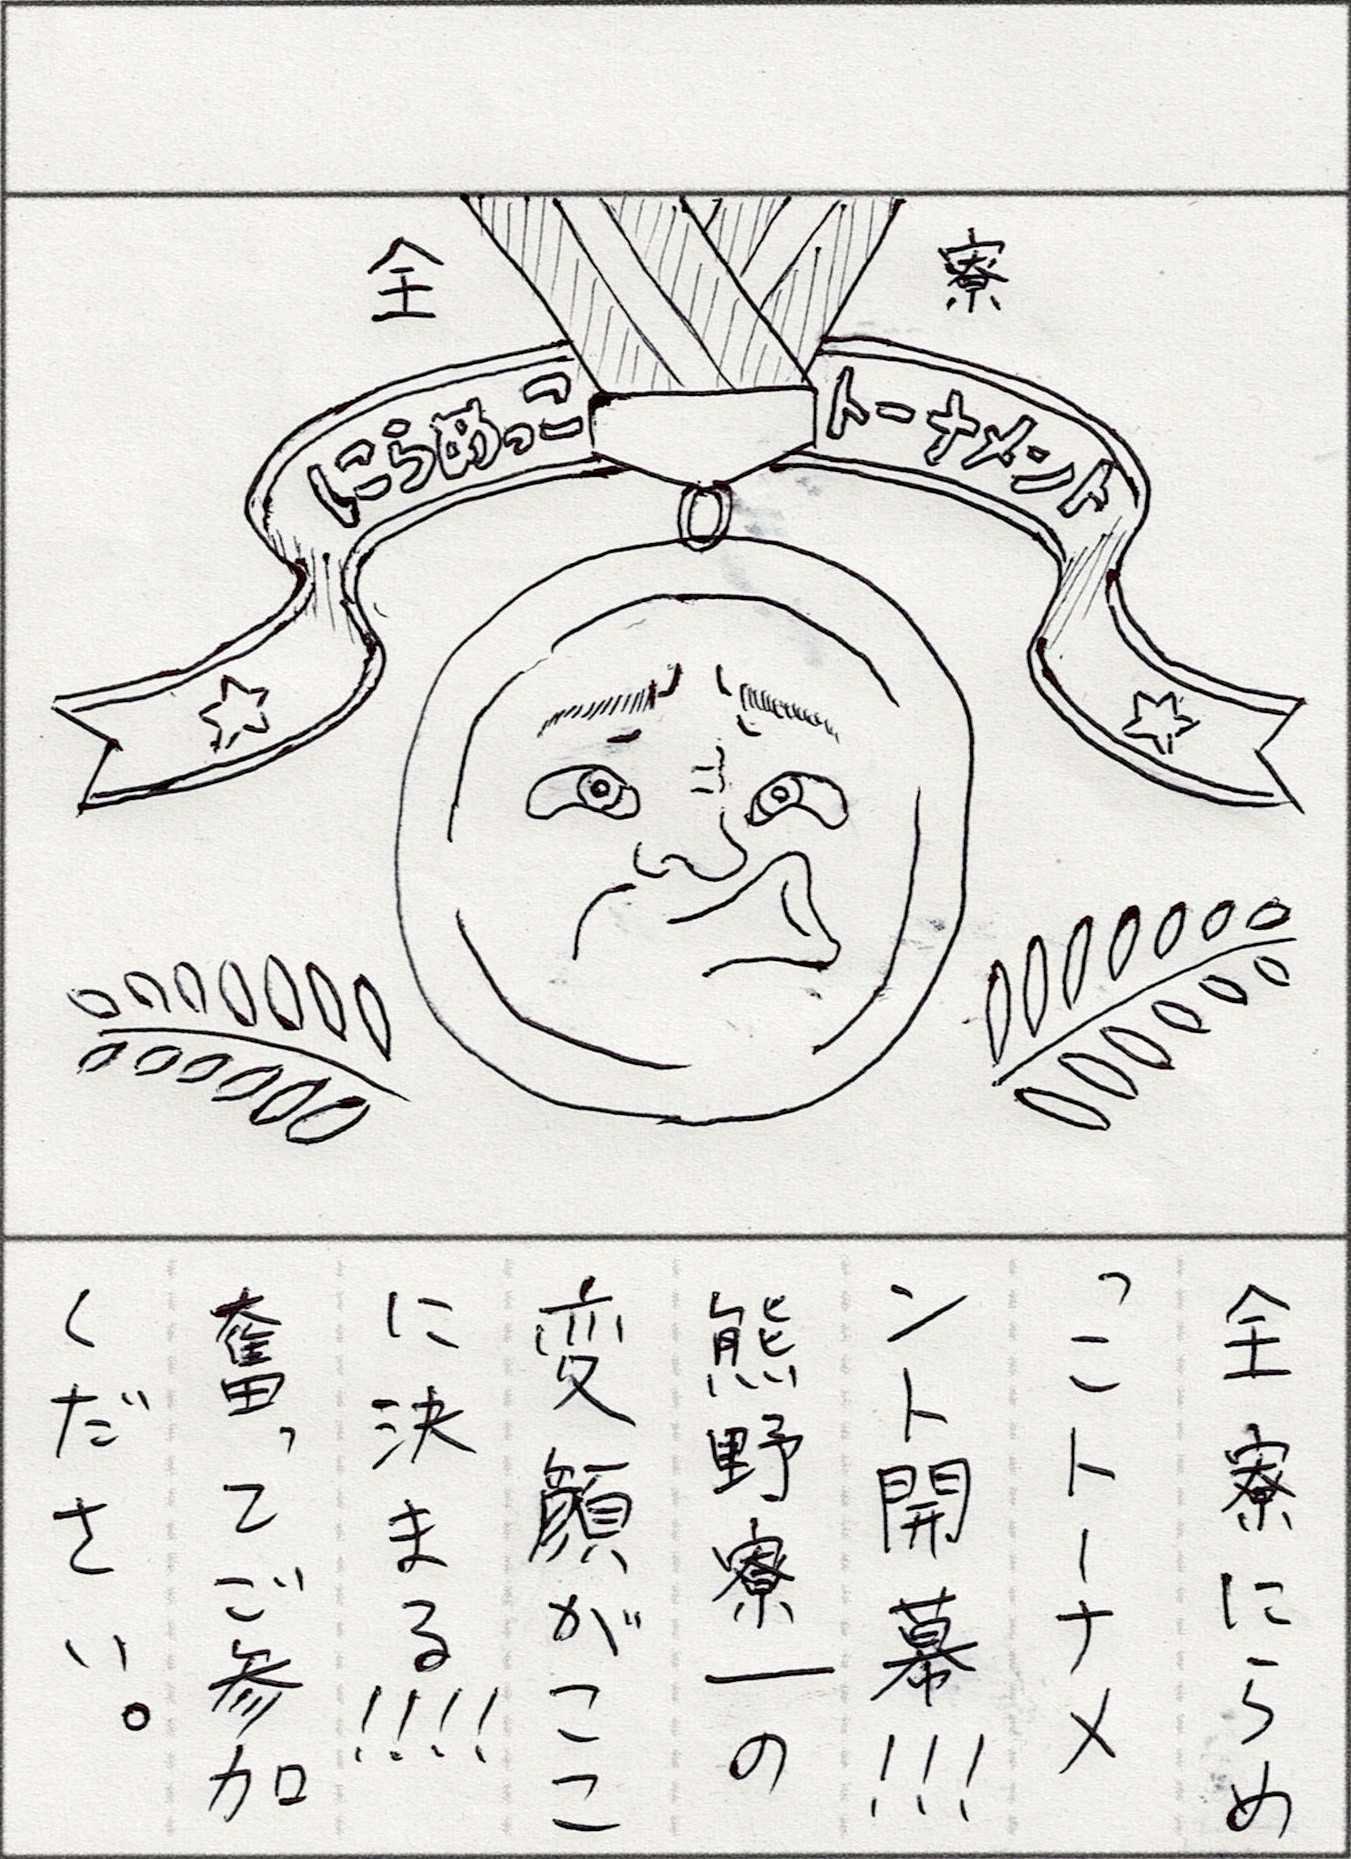 全 寮
にらめっこ トーナメント
全寮にらめ
っこトーナメ
ント開幕!!!
熊野寮一の
変顔がここ
に決まる!!!!
奮ってご参加
ください。